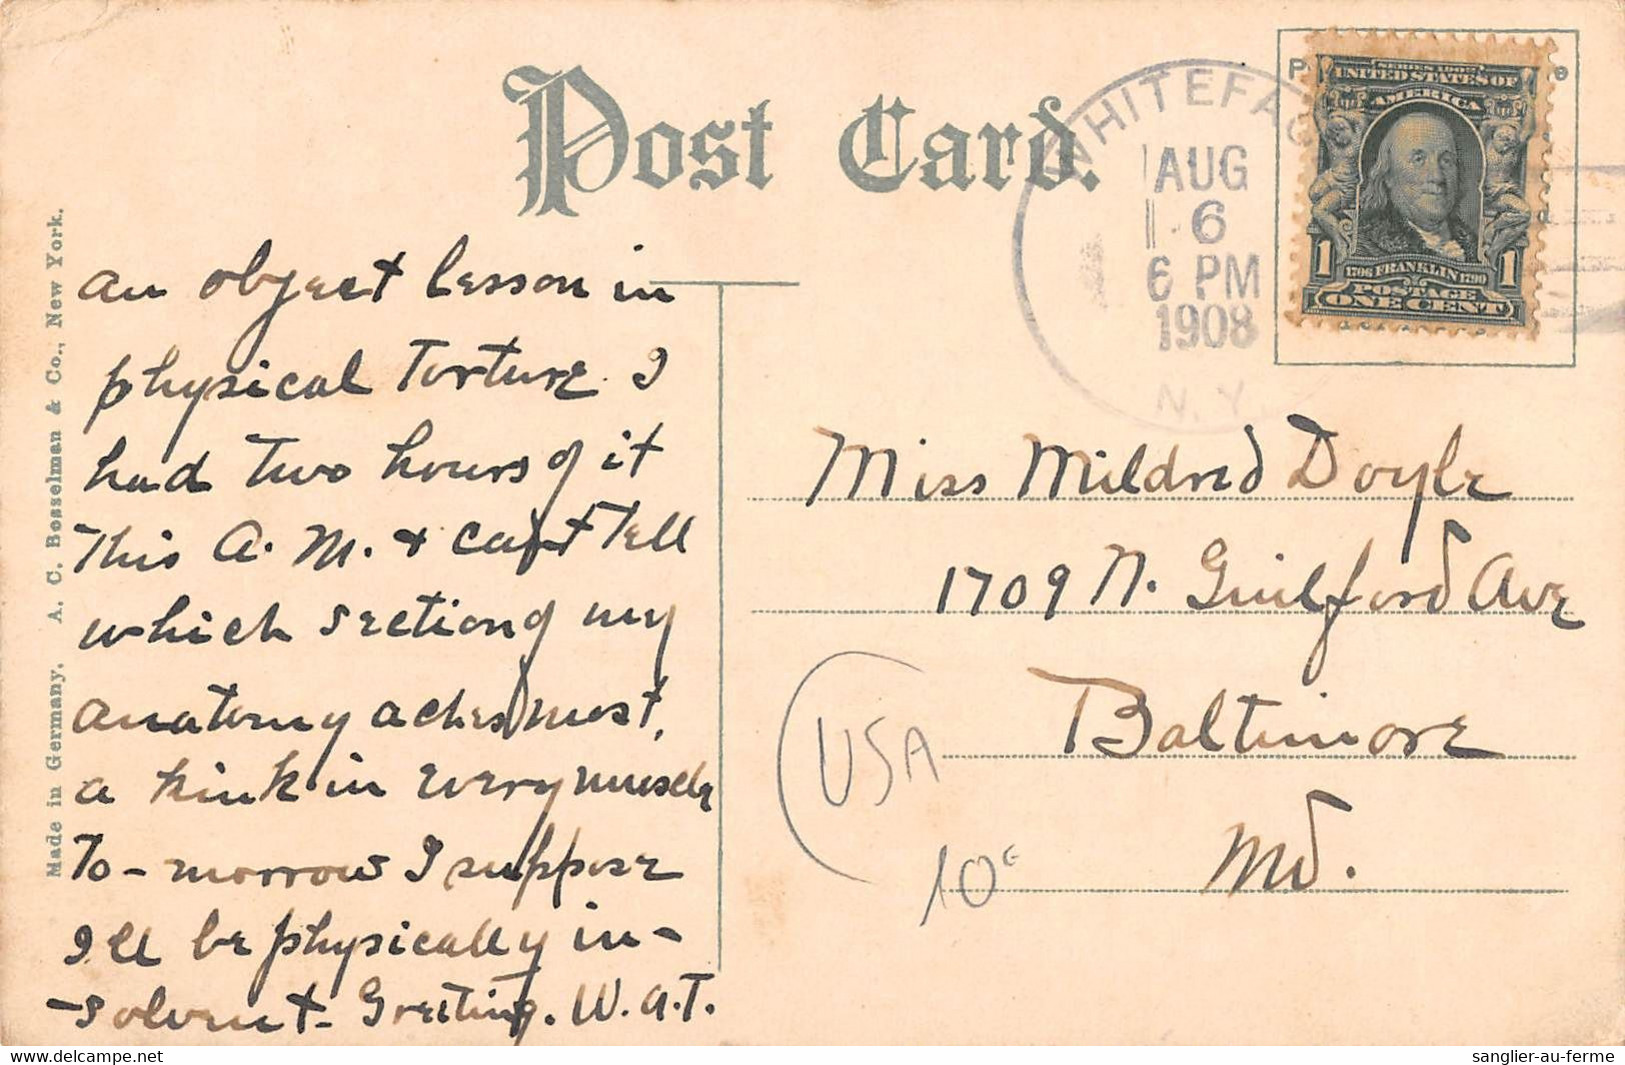 Post Card.
WHITEFAC
AUG
6
6 PM
1908
N.Y.
P e
d
SERIES 1902
UNITED STATES OF
AMERICA
1706 FRANKLIN 1790
1 1
POSTAGE
ONE CENT
Made in Germany. A. C. Bosselman & Co., New York.
an object lesson in
physical torture. I
had two hours of it
this A. M. + can't tell
which section of my
anatomy aches most,
a kink in every muscle
To-morrow I suppose
I'll be physically in-
-solvent - Greeting. W. A. T.
Miss Mildred Doyle
1709 N. Guilford Ave
Baltimore
Md.
USA
10€
delcampe.net
sanglier-au-ferme